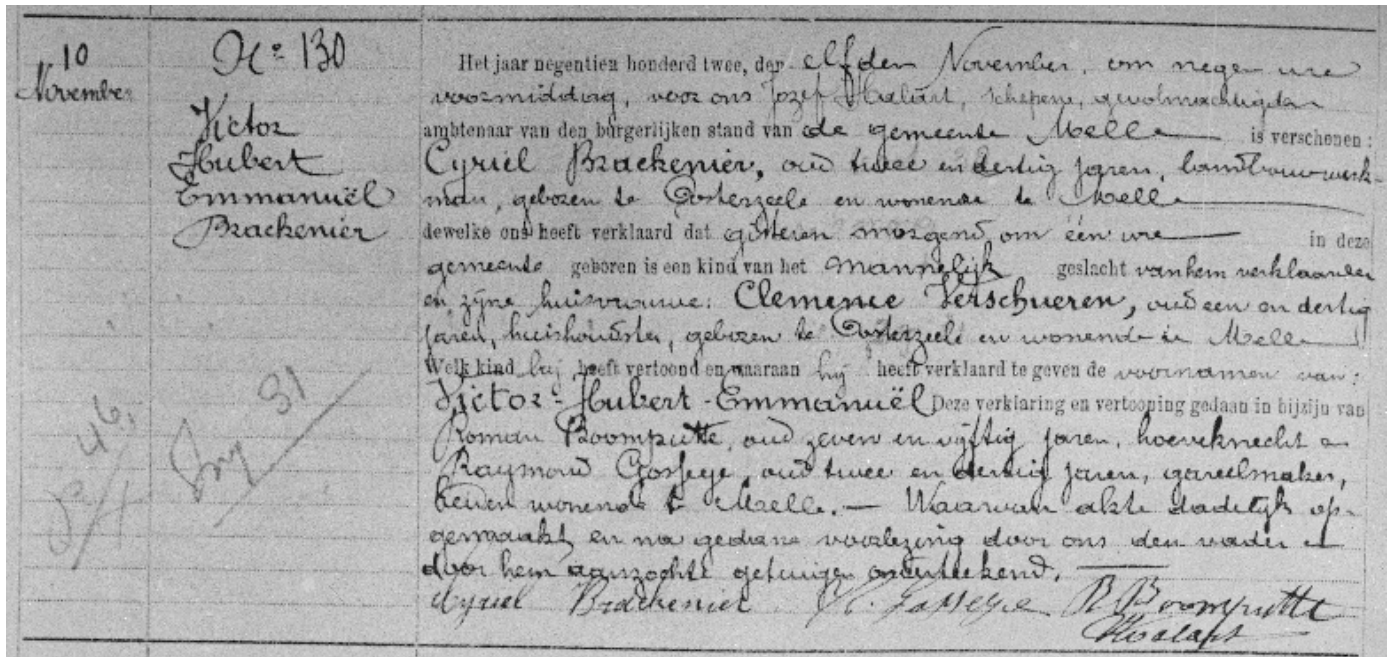 10
November
No 130
Victor
Hubert
Emmanuël
Brackenier
Het jaar negentien honderd twee, den elfden November, om negen ure
voormiddag, voor ons Jozef Halart, schepene, gevolmachtigden
ambtenaar van den burgerlijken stand van de gemeente Melle is verschenen:
Cyriel Brackenier, oud twee en dertig jaren, landbouwwerk-
man, geboren te Oosterzeele en wonende te Melle
dewelke ons heeft verklaard dat gisteren morgend, om één ure in deze
gemeente geboren is een kind van het mannelijk geslacht van hem verklaarder
en zijne huisvrouwe: Clemence Verschueren, oud een en dertig
jaren, huishoudster, geboren te Oosterzeele en wonende te Melle
Welk kind hij heeft vertoond en waaraan hij heeft verklaard te geven de voornamen van:
Victor-Hubert-Emmanuël Deze verklaring en vertooning gedaan in bijzijn van
Roman Boomputte, oud zeven en vijftig jaren, hoeveknecht en
Raymond Gosseye, oud twee en dertig jaren, gareelmaker,
beiden wonende te Melle. — Waarvan akte dadelijk op-
gemaakt, en na gedane voorlezing door ons den vader en
door hem aanzochte getuigen onderteekend.
Cyriel Brackenier R. Gosseye R. Boomputte